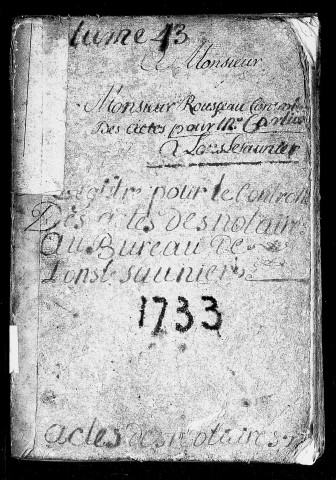 tume 43
A Monsieur
Monsieur Rousseau Control
Des actes pour Mr
A Lons Lesaunier
Registre pour le Controlle
Des actes des notaire
Au Bureau De
Lons le saunier
1733
actes des notaires